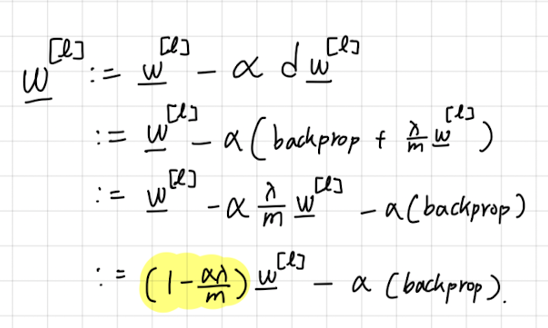 w^[l] := w^[l] - α d w^[l]
:= w^[l] - α ( backprop + λ/m w^[l] )
:= w^[l] - α λ/m w^[l] - α ( backprop )
:= ( 1 - αλ/m ) w^[l] - α ( backprop ).